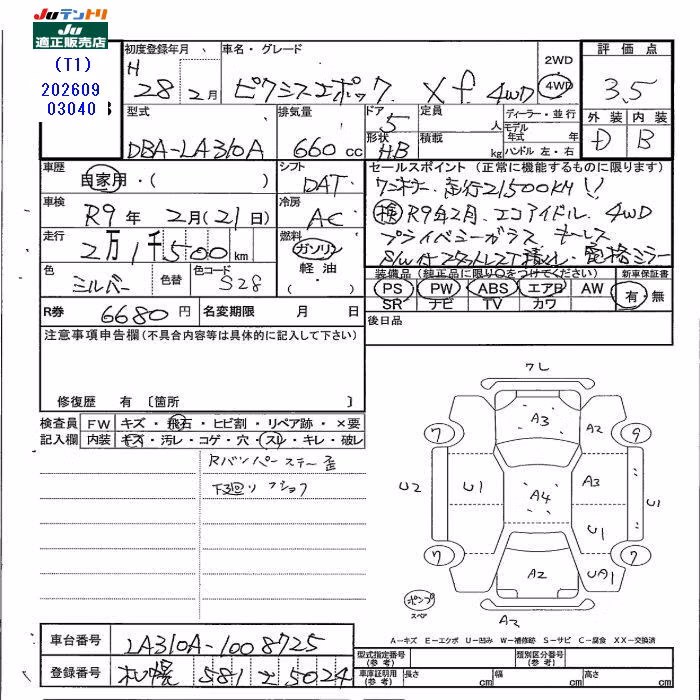 JUテントリ
JU
適正販売店
(T1)
202609
03040
初度登録年月 車名・グレード 2WD 4WD 評価点
H 28 2月 ピクシスエポック Xf 4WD 3.5
型式 排気量 ドア 定員 ディーラー・並行 外装 内装
DBA-LA310A 660 cc 5 人 モデル年式 年 D B
形状 積載 kg ハンドル 左・右
HB
車歴 自家用・( ) シフト DAT
セールスポイント (正常に機能するものに限ります)
ワンオーナー 走行21500KM!!
車検 R9年 2月(21日) 冷房 AC
検 R9年2月、エコアイドル 4WD
走行 2万1千500km 燃料 ガソリン 軽油 ( )
プライバシーガラス キーレス
S/W付スタッドレス積込、電格ミラー
色 シルバー 色替 色コード S28
装備品 (純正品に限り○をつけてください) 新車保証書
PS PW ABS エアB AW 有・無
SR ナビ TV カワ
R券 6680円 名変期限 月 日
後日品
注意事項申告欄(不具合内容等は具体的に記入して下さい)
修復歴 有 〔箇所 〕
検査員記入欄 FW キズ・飛石・ヒビ割・リペア跡・×要
内装 キズ・汚レ・コゲ・穴・スレ・キレ・破レ
Rバンパーステー歪
下廻り フショク
フL
A3
A2
7 9
A3
U2 U1 A4 U1
U1
7 A2 UA1 7
ポンプ
スペア
A2
A-キズ E-エクボ U-凹み W-補修跡 S-サビ C-腐食 XX-交換済
車台番号 LA310A-1008725
型式指定番号(参考) 類別区分番号(参考)
登録番号 札幌 581 5024
車庫証明用(参考) 長さ cm 幅 cm 高さ cm